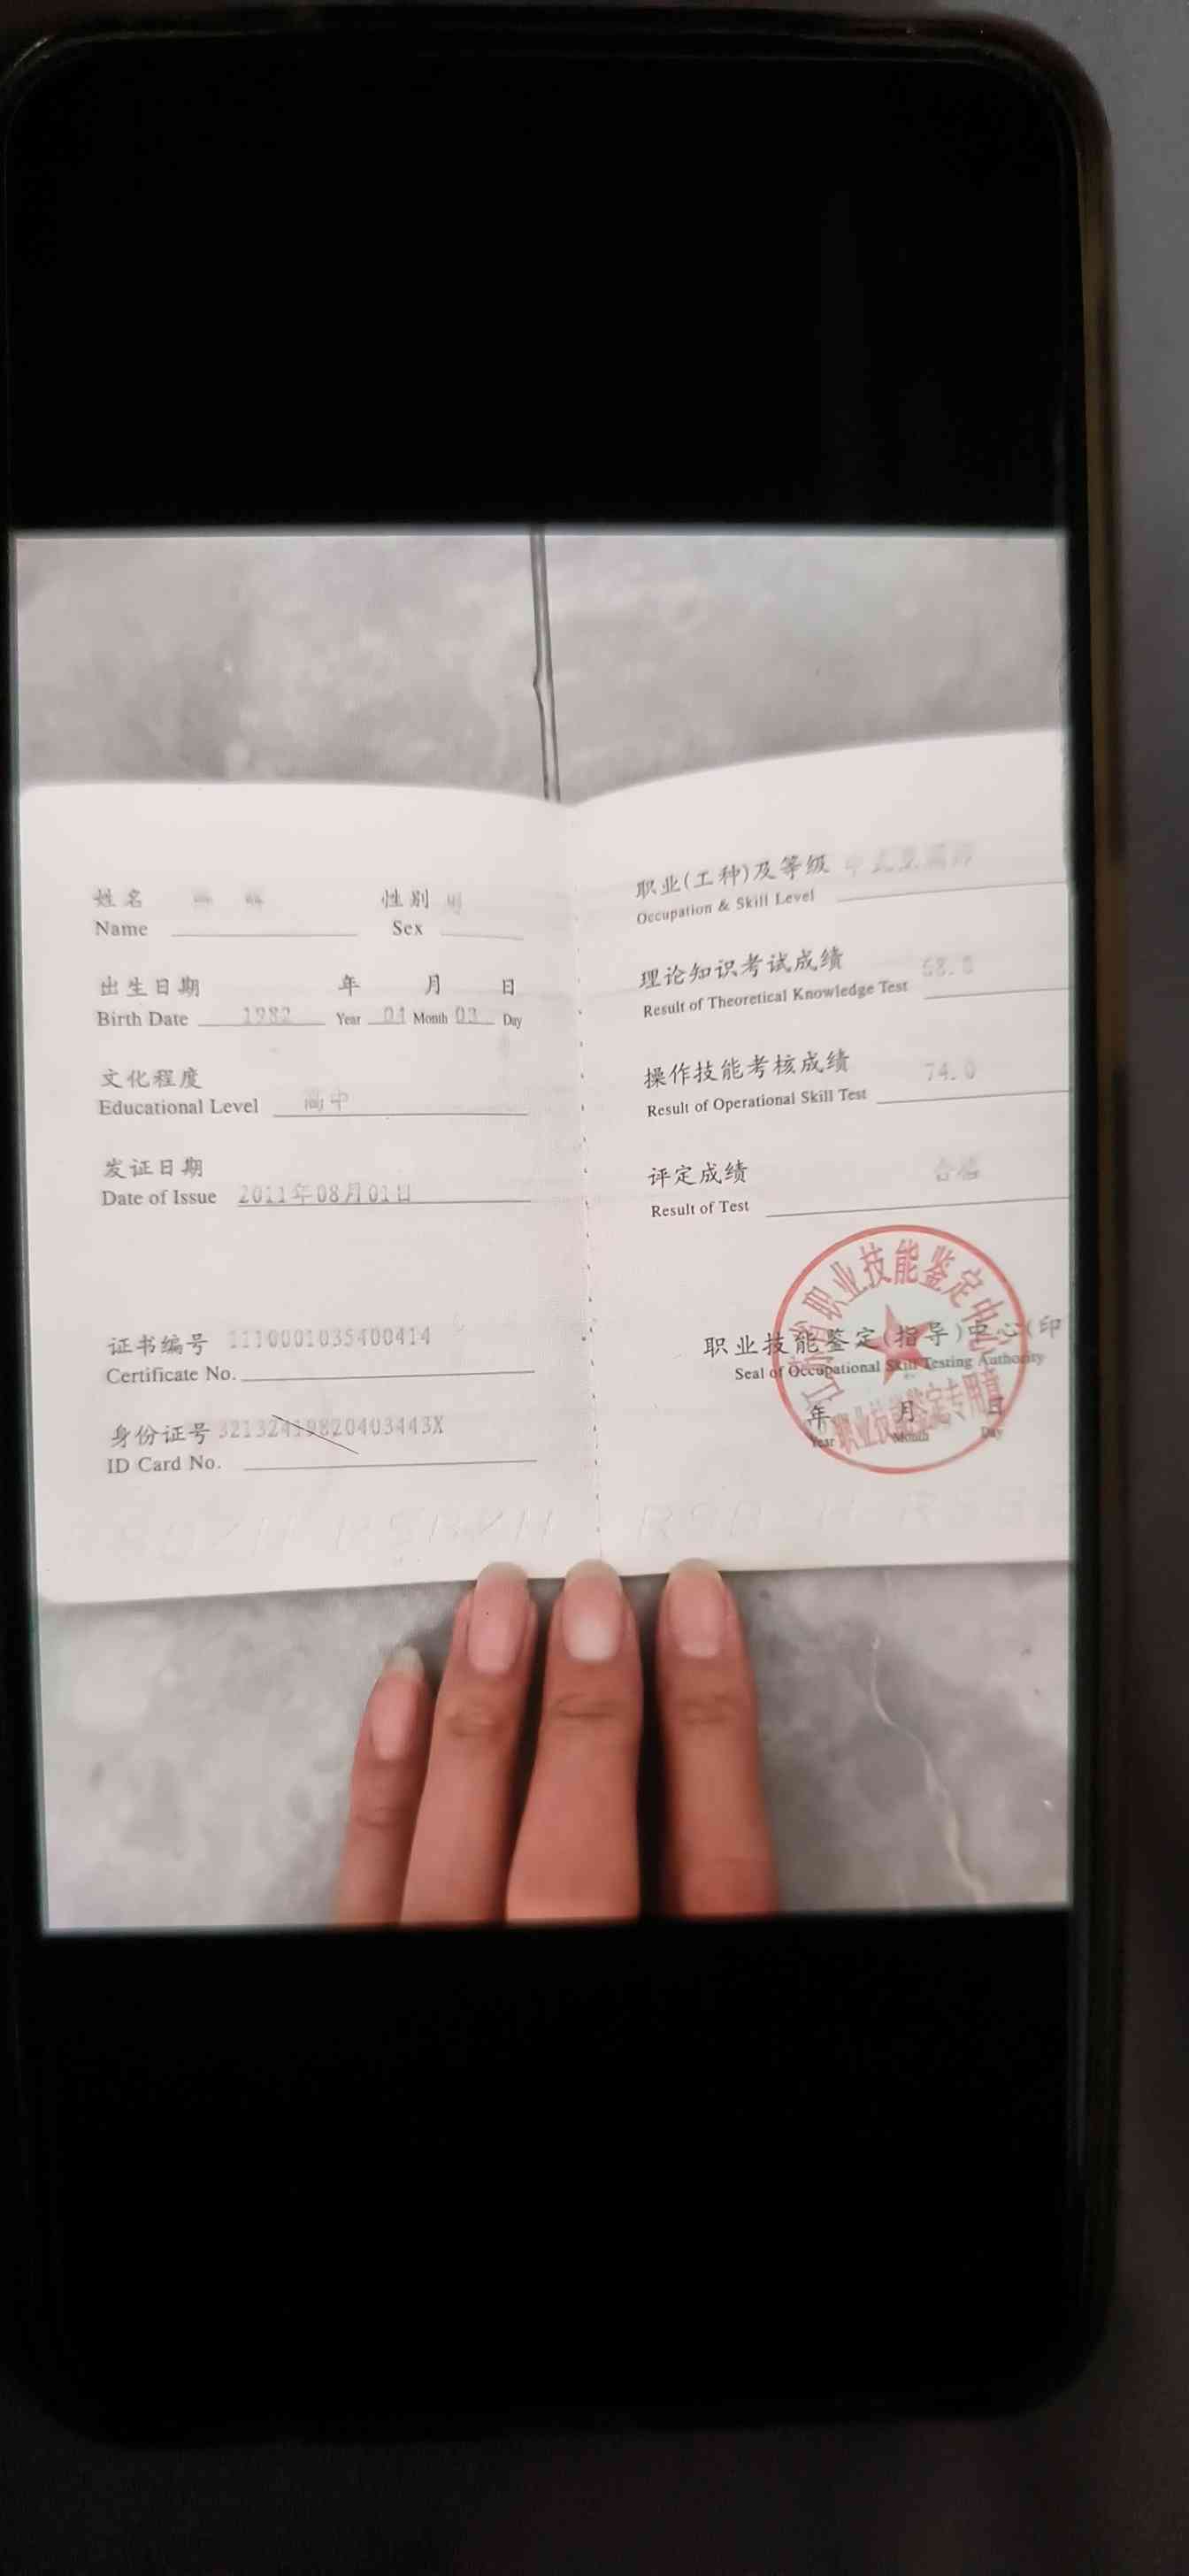 姓名 性别 男
Name Sex
出生日期 年 月 日
Birth Date 1982 Year Month 03 Day
文化程度
Educational Level 高中
发证日期
Date of Issue 2011年08月01日
证书编号 1110001035400414
Certificate No.
身份证号 32132419820403443X
ID Card No.
职业(工种)及等级
Occupation & Skill Level
理论知识考试成绩 68.0
Result of Theoretical Knowledge Test
操作技能考核成绩 74.0
Result of Operational Skill Test
评定成绩 合格
Result of Test
职业技能鉴定(指导)中心(印
Seal of Occupational Skill Testing Authority
年 月 日
Year Month Day
职业技能鉴定中心
职业技能鉴定专用章